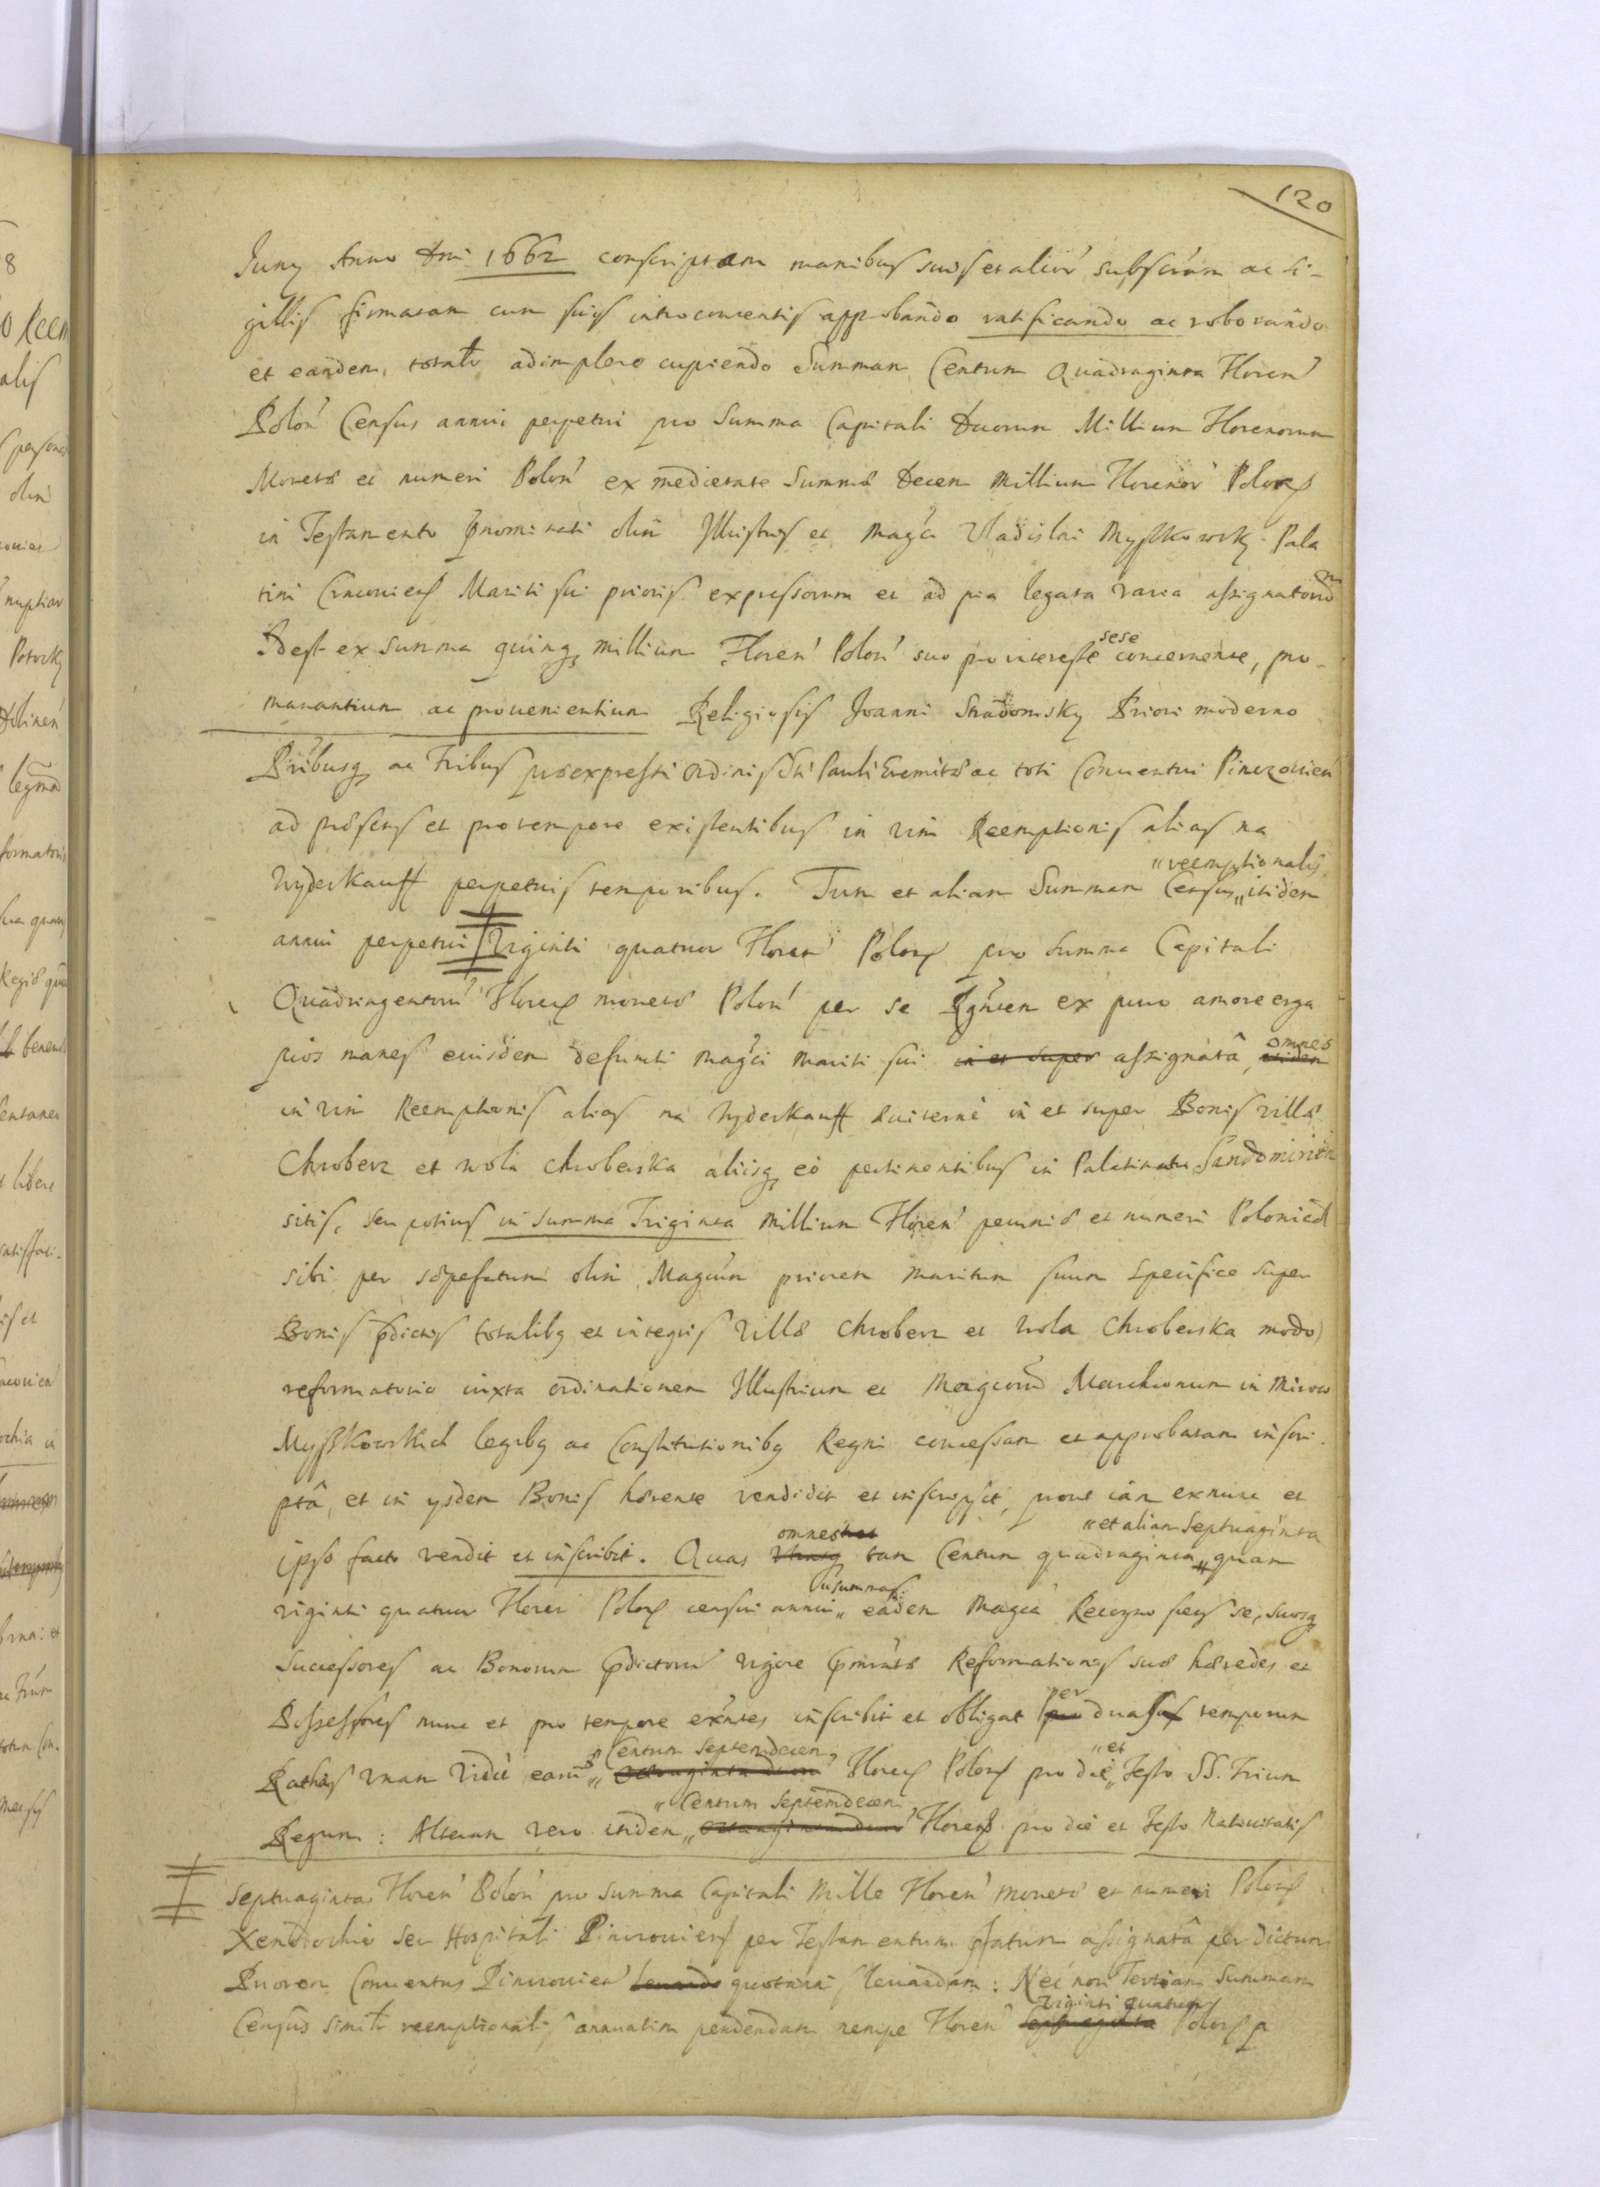 120
Juny Anno Dni 1662 conscriptam manibus suis et alior subscrām ac si-
gillis firmatam cum suis introcontentis approbando ratificando ac roborando
et eandem totalr adimplere cupiendo Summam Centum Quadraginta Floren
Polon Census annui perpetui pro Summa Capitali Duorum Millium Florenorum
Monetæ et numeri Polon ex medietate Summæ Decem Millium Florenor Polon
in Testamento pnominati olim Illustris et Magci Vladislai Myszkowsky Pala
tini Cracovien Mariti sui prioris expressorum et ad pia legata varia assignatorum
Idest ex Summa quinq millium Floren Polon suo pro interesse sese concernente, pro-
manantium ac provenientium Religiosis Joanni Priori moderno
Pribusq ac Fribus præexpressi Ordinis Sti Pauli Eremitæ ac toti Conventui Pinczovien
ad præsens et pro tempore existentibus in vim Reemptionis alias na
Wyderkauff perpetuis temporibus. Tum et aliam Summam Census „ reemptionalis itidem
annui perpetui Viginti quatuor Floren Polon pro Summa Capitali
Quadringentoru Floren monetæ Polon per se Rgnten ex puro amore erga
pios manes eiusdem defuncti magci mariti sui in et super assignatâ, itidem omnes
in vim Reemptionis alias na Wyderkauff in et super Bonis villæ
Chroberz et Wola Chroberska aliisq eò pertinentibus in Palatinatu Sandomirien
sitis, seu potius in summa Triginta Millium Floren pecuniæ et numeri Polonical
sibi per sæpefatum olim Magcum priorem maritum suum specifice super
Bonis pdictis totalibq et integris Villæ Chroberz et Wola Chroberska modo
reformatorio iuxta ordinationem Illustrium et Magcoru Marchionum in Mirow
Myszkowskich legibq ac Constitutionibq Regni concessam et approbatam inscri-
ptâ, et in ysdem Bonis hærente vendidit et inscripsit, prout iam ex nunc et
ipso facto vendit et inscribit. Quas omnes tam Centum quadraginta „ et aliam Septuaginta quam
viginti quatuor Floren Polon census annui „ summas eadem Magca Recogno se, suosq
Successores ac Bonorum pdictoru vigore Reformationis suæ hæredes et
Possessores nunc et pro tempore exntes inscribit et obligat pro per duas temporum
Rathas unam earu „ Centum Septemdecem Floren Polon pro die „ et Festo SS. Trium
Regum: Alteram vero itidem „ Centum Septemdecem Floren pro die et Festo Nativitatis
Septuaginta Floren Polon pro Summa Capitali Mille Floren monetæ et numeri Polon
Xenodochio seu Hospitali Pinczovien per Testamentum pfatum assignatâ per dictum
Priorem Conventus Pinczovien quotanni levandam: Nec non Tertiam Summam
Census similr reemptionalis annuatim pendendam nempe Floren Viginti quatuor Polon p